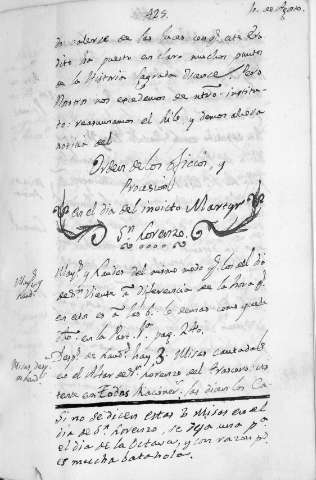 425.
10. de Agosto.
de valerse de las luces con q.e este Eru
dito ha puesto en claro muchos puntos
de la Historia Sagrada Oscence. Pero
Nosotros nos excedemos de ntro. institu-
to: reasumamos el hilo, y demos ahora
noticia del
Orden de los oficios, y
Procesion
en el dia del invicto Martyr
Sn. Lorenzo.
May.s y Laudes del mismo modo q. los del dia
de Sn. Vicente a diferencia de la hora q.
en este es a las 6. lo demas como queda
dho. en la Part. 1a. pag. 240.
Desp.s de Laud.s hay 3. Misas cantadas
en el Altar de Sn. Lorenzo del Trascoro
en Todas Racioner. las dicen los Ca-
Si no se dicen estas 3 Misas en el
dia de Sn. Lorenzo, se deja una pa.
el dia de la Octava, y con razon pr.
es mucha batahola.